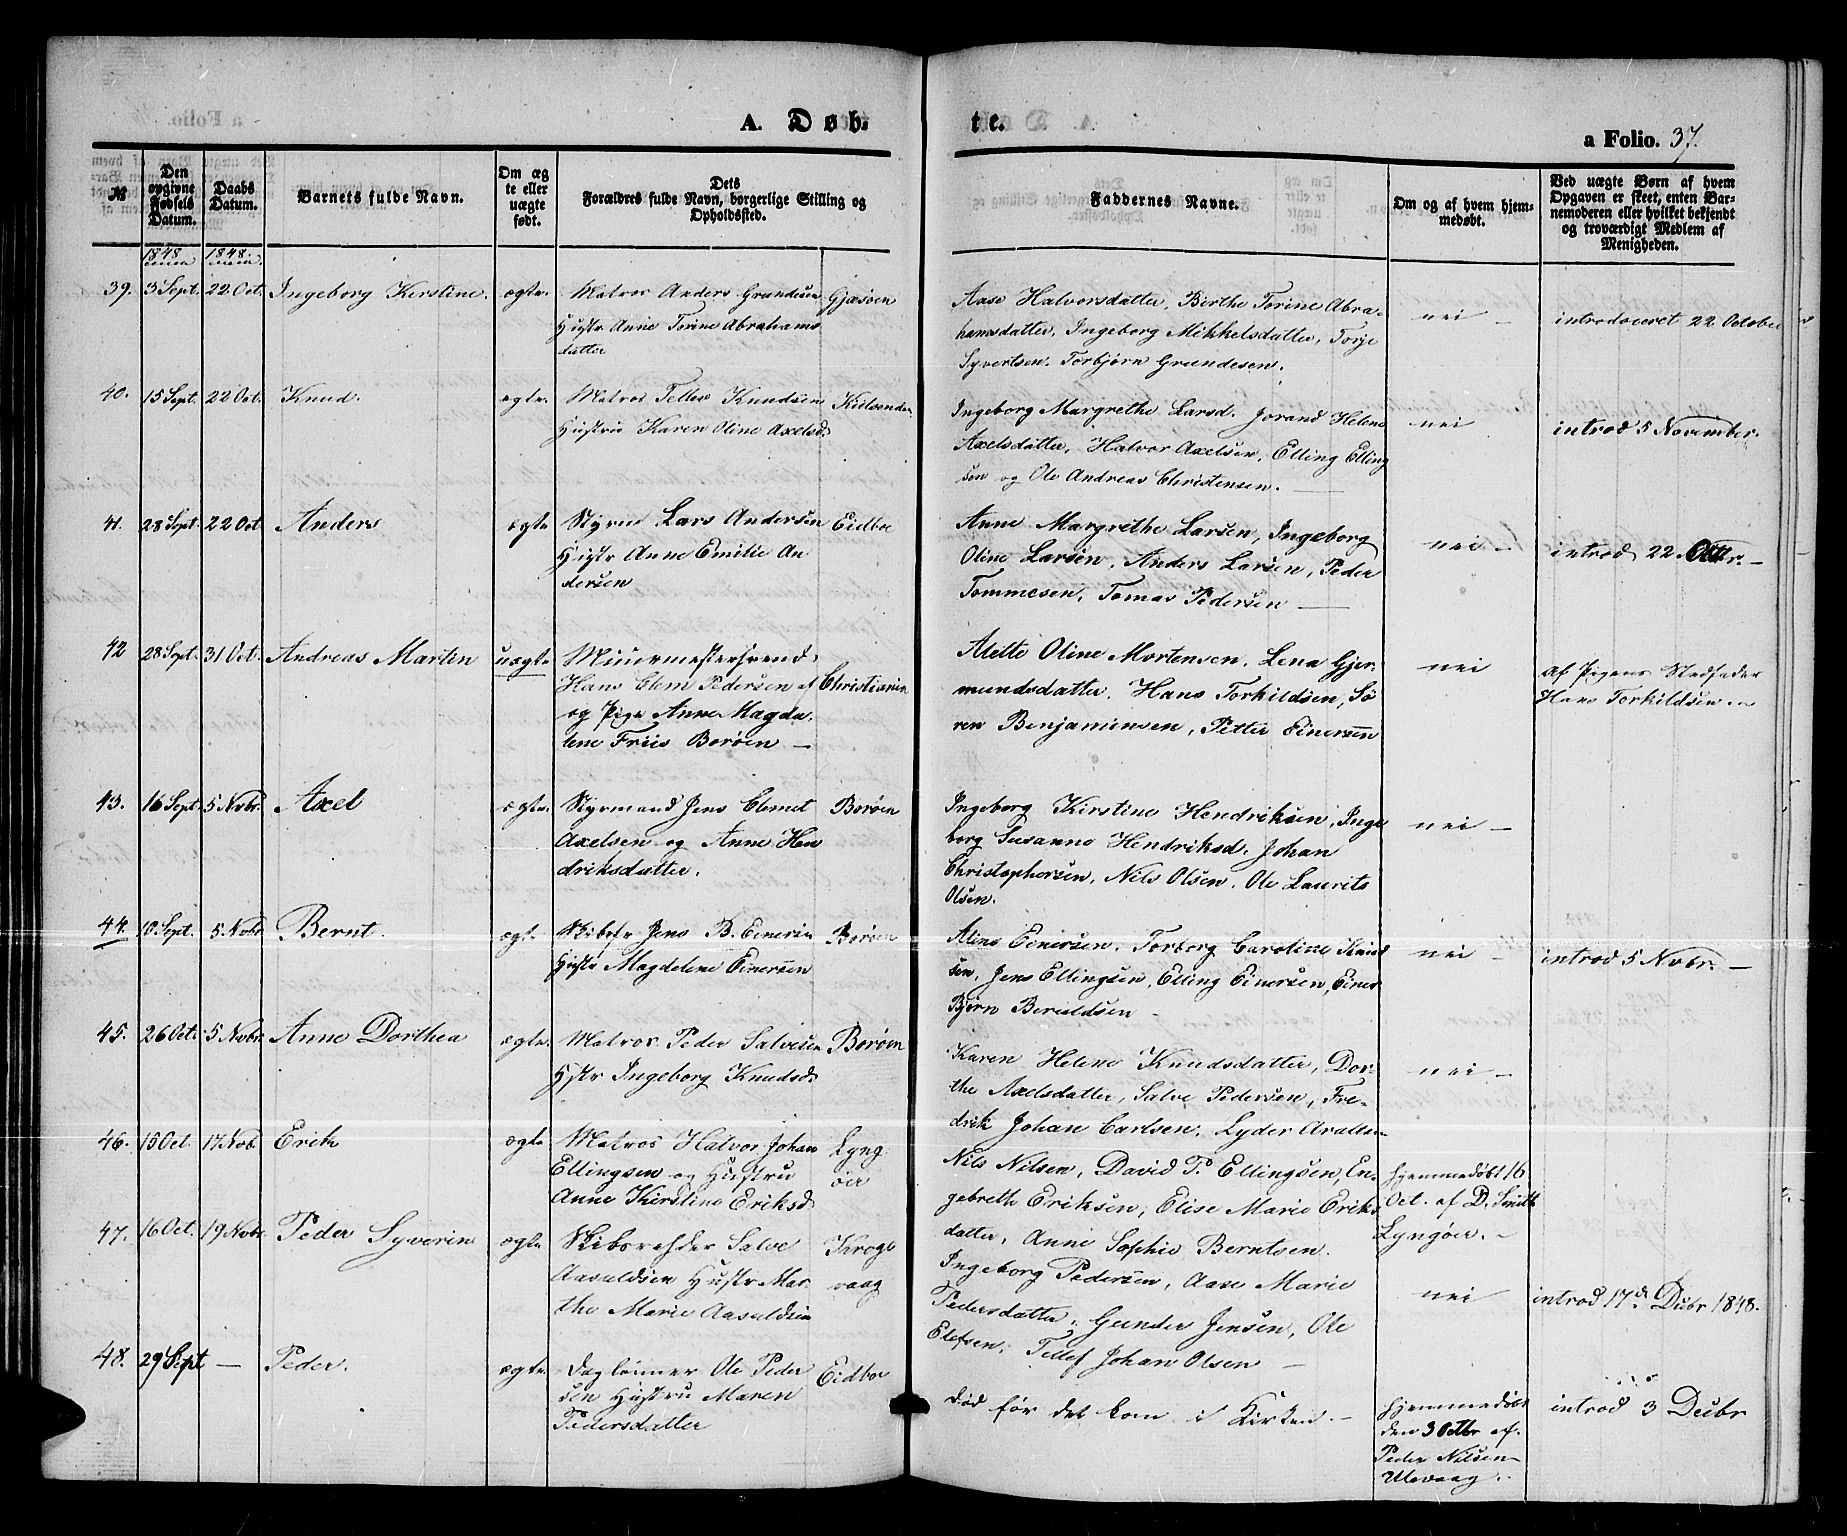 A. Døb=
te.
a Folio. 37.
№
Den opgivne Fødsels Datum.
Daabs Datum.
Barnets fulde Navn.
Om æg te eller uægte født.
Dets Forældres fulde Navn, borgerlige Stilling og Opholdssted.
Faddernes Navne.
Om og af hvem hjem-
medøbt.
Ved uægte Børn af hvem
Opgaven er skeet, enten Bar-
nemoderen eller hvilket bekjendt
og troværdigt Medlem af
Menigheden.
1848 1848
39. 3 Sept. 22 Oct. Ingeborg Kirstine. ægte. Matros Anders Grundesen Gjæsøen
Hustr Anne Torine Abrahams
datter
Aase Halvorsdatter, Birthe Torine Abra-
hamsdatter, Ingeborg Mikkelsdatter, Torje
Syvertsen. Torbjørn Grundesen.
nei
introduceret 22 October
40. 15 Sept. 22 Oct. Knud. ægte. Matros Tellef Knudsen
Hustru Karen Oline Axelsd.
Ingeborg Margrethe Larsd. Jorand Helene
Axelsdatter, Halvor Axelsen, Elling Elling
sen og Ole Andreas Christensen.
nei
introd 5 November.
41. 28 Sept. 22 Oct Anders ægte Styrm Lars Andersen Eidboe
Hustr Anne Emilie An
dersen
Anne Margrethe Larsen, Ingeborg
Oline Larsen, Anders Larsen, Peder
Tommesen, Tomas Pedersen
nei
introd 22
42 28 Sept. 31 Oct. Andreas Martin uægte Muurmestersvend
Hans Clem Pedersen af Christiania
og Pige Anne Magda
lene Friis Borøen
Alette Oline Mortensen. Lena Gjer-
mundsdatter, Hans Torkildsen, Sø
ren Benjaminsen, Petter Einersen
nei
af Pigens Stedfader
Hans Torkildsen
43. 16 Sept. 5 Nvbr. Axel ægte. Styrmand Jens Clemet Borøen
Axelsen og Anne Hen
driksdatter.
Ingeborg Kirstine Hendriksen, Inge
borg Susanne Hendriksd. Johan
Christophersen, Nils Olsen, Ole Laurits
Olsen.
nei
44. 10 Sept. 5 Nvbr Bernt. ægt. Skibsf Jens B. Einersen Borøen
Hustr Magdelene Einersen
Aline Einersen. Torborg Caroline
sen, Jens Ellingsen, Elling Einersen, Einer
Bjørn
nei
introd 5 Nvbr.
45. 26 Oct. 5 Nvbr. Anne Dorthea ægte. Matros Peder Salvesen Borøen
Hstr Ingeborg Knudsd.
Karen Helene Knudsdatter, Dor-
the Axelsdatter, Salve Pedersen, Fre-
drik Johan Carlsen. Lyder
nei
46. 15 Oct. 17 Nvb. Erik ægte Matros Halvor Johan Lyng
Ellingsen og Hustru øer
Anne Kirstine Eriksd
Nils Nilsen, David T. Ellingsen, En-
gebreth Eriksen, Elise Marie Eriks
datter, Anne Sophie Berntsen.
Hjemmedøbt 16
Oct. af D. Smith
Lyngøer.
47. 16 Oct. 19 Nvbr. Peder Syverin ægte Skibsrehder Salve Krogs
Aasuldsen Hustr Mar- vaag
the Marie Aasuldsen
Ingeborg Pedersen, Aase Marie
Pedersdatter, Gunder Jensen, Ole
Elefsen, Tellef Johan Olsen
nei
introd 17de Dcbr 1848.
48. 29 Sept — Peder. ægte. Dagleiner Ole Peder Eidboe
sen Hustru Maren
Pedersdatter
død før det kom i Kirken.
Hjemmedøbt
den 3 Octbr af
Peder Nilsen
Ulevaag.
introd 3 Dcbr